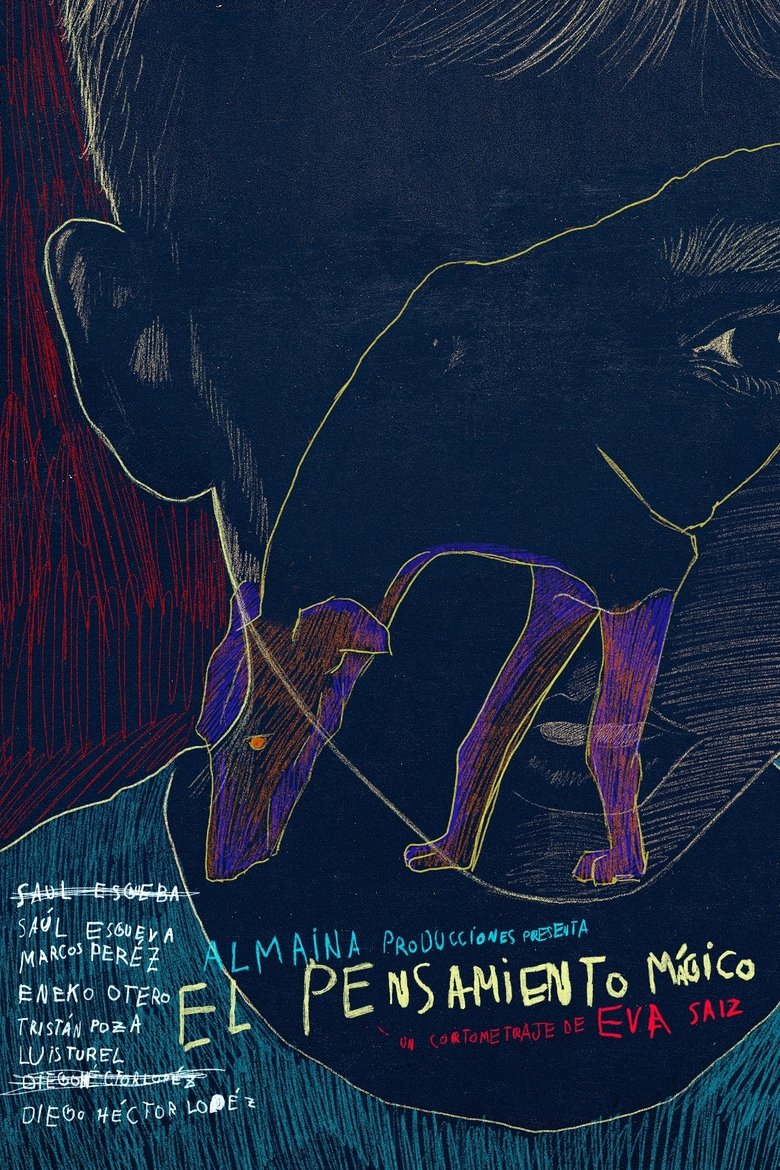 SAÚL ESGUEBA
SAÚL ESGUEVA
MARCOS PERÉZ
ENEKO OTERO
TRISTÁN POZA
LUIS TUREL
DIEGO HÉCTOR LOPÉZ
DIEGO HÉCTOR LOPÉZ
ALMAINA PRODUCCIONES PRESENTA
EL PENSAMIENTO MÁGICO
UN CORTOMETRAJE DE EVA SAIZ